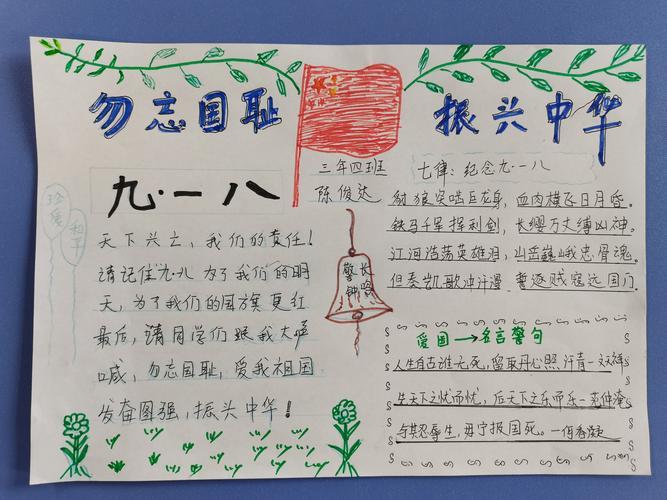 勿忘国耻
振兴中华
三年四班
陈俊达
九·一八
天下兴亡，我们的责任！
请记住九·八 为了我们的明
天，为了我们的国旗更红
最后，请同学们跟我大声
喊，勿忘国耻，爱我祖国
发奋图强，振兴中华！
珍爱
和平
警钟
长鸣
七律：纪念九·一八
豺狼突啮巨龙身，血肉横飞日月昏。
铁马千军挥利剑，长缨万丈缚凶神。
江河浩荡英雄泪，山岳巍峨忠骨魂。
但奏凯歌冲汗漫 誓逐贼寇远国门
爱国→名言警句
人生自古谁无死，留取丹心照汗青一文天祥
先天下之忧而忧，后天下之乐而乐一范仲淹
与其忍辱生，毋宁报国死。一何香凝